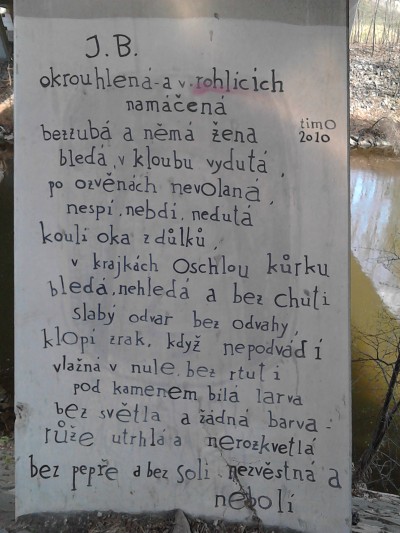 J.B.
okrouhlená-a v rohlících
namáčená
bezzubá a němá žena
timo
2010
bledá, v kloubu vydutá,
po ozvěnách nevolaná,
nespí, nebdí, nedutá
kouli oka z důlků,
v krajkách oschlou kůrku
bledá, nehledá a bez chuti
slabý odvar bez odvahy,
klopí zrak, když nepodvádí
vlažná v nule, bez rtuti
pod kamenem bílá larva
bez světla a žádná barva -
růže utrhlá a nerozkvetlá
bez pepře a bez soli nezvěstná a
nebolí